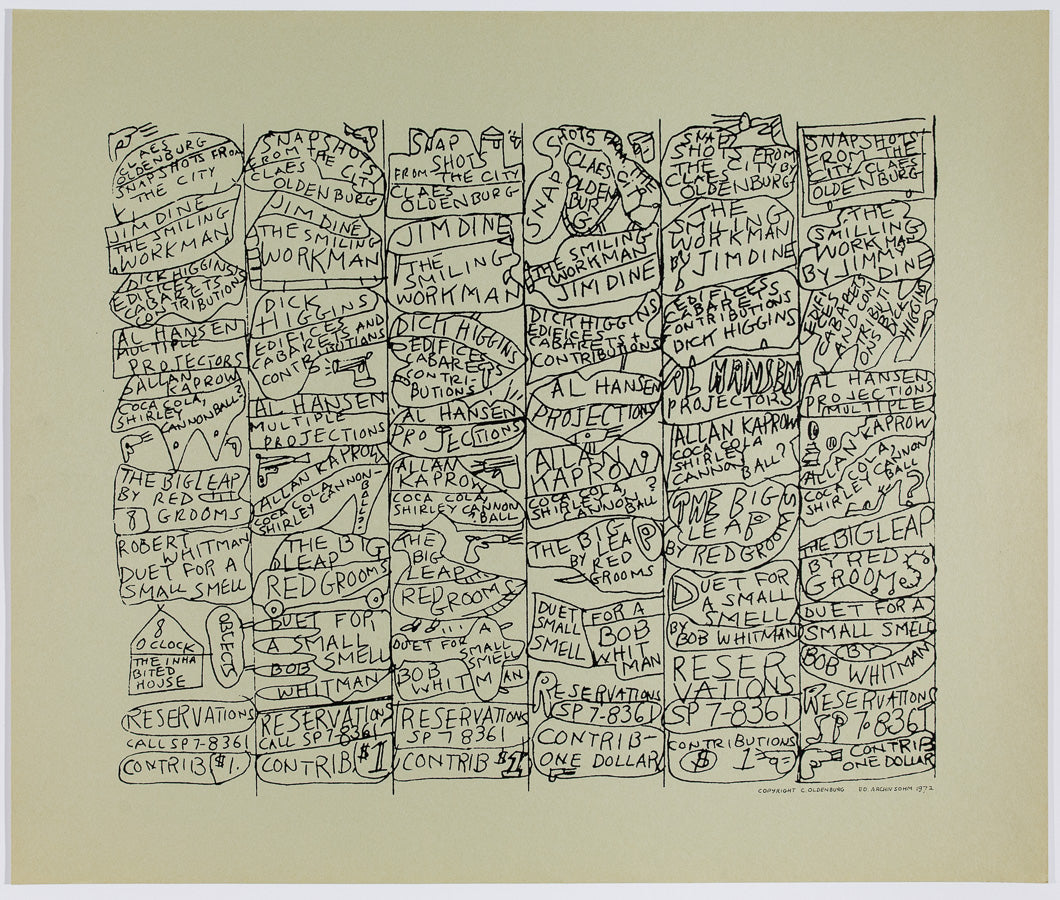 CLAES
OLDENBURG
SNAPSHOTS FROM
THE CITY
JIM DINE
THE SMILING
WORKMAN
DICK HIGGINS
EDIFICES
CABARETS
CONTRIBUTIONS
AL HANSEN
MULTIPLE
PROJECTORS
ALLAN
KAPROW
COCA COLA,
SHIRLEY
CANNONBALL?
THE BIG LEAP
BY RED
GROOMS
8
ROBERT
WHITMAN
DUET FOR A
SMALL SMELL
8
O CLOCK
THE INHA
BITED
HOUSE
OBJECTS
RESERVATIONS
CALL SP 7-8361
CONTRIB $1.
SNAPSHOTS
FROM THE
CITY
CLAES
OLDENBURG
JIM DINE
THE SMILING
WORKMAN
DICK
HIGGINS
EDIFICES AND
CABARETS
CONTRIBUTIONS
AL HANSEN
MULTIPLE
PROJECTIONS
ALLAN KAPROW
COCA COLA,
SHIRLEY
CANNON-
BALL?
THE BIG
LEAP
RED GROOMS
DUET FOR
A SMALL
SMELL
BOB
WHITMAN
RESERVATIONS
CALL SP 7-8361
CONTRIB. $1
SNAP
SHOTS
FROM THE CITY
CLAES
OLDENBURG
JIM DINE
THE
SMILING
WORKMAN
DICK HIGGINS
EDIFICES
CABARETS
CONTRI-
BUTIONS
AL HANSEN
PROJECTIONS
ALLAN
KAPROW
COCA COLA,
SHIRLEY CANNON
BALL
THE
BIG
LEAP
RED GROOMS
DUET FOR A
SMALL
SMELL
BOB
WHITMAN
RESERVATIONS
SP 7 8361
CONTRIB $1
SNAPSHOTS FROM THE CITY
CLAES
OLDEN
BUR
G
THE SMILING
WORKMAN
JIM DINE
DICK HIGGINS
EDIFICES
CABARETS +
CONTRIBUTIONS
AL HANSEN
PROJECTIONS
ALLAN
KAPROW
COCA COLA, ?
SHIRLEY
CANNONBALL
THE BIG LEAP
BY RED
GROOMS
DUET
SMALL
SMELL
FOR A
BOB
WHIT
MAN
RESERVATIONS
SP 7-8361
CONTRIB-
ONE DOLLAR
SNAP
SHOTS FROM
THE CITY BY
CLAES
OLDENBURG
THE
SMILING
WORKMAN
BY JIM DINE
EDIFICESS
CABARETS
CONTRIBUTIONS
DICK HIGGINS
AL HANSEN
PROJECTORS
ALLAN KAPROW
COCA COLA
SHIRLEY
CANNON
BALL?
THE BIG
LEAP
BY RED GROOMS
DUET FOR
A SMALL
SMELL
BY
BOB WHITMAN
RESER
VATIONS
SP 7-8361
CONTRIBUTIONS
$ 1
SNAPSHOTS
FROM THE
CITY CLAES
OLDENBURG
THE
SMILLING
WORK MAN
BY JIMMY
DINE
EDIFICES
CABARETS
AND CON
TRIBUTI
ONS
DICK
HIGGINS
AL HANSEN
PROJECTIONS
MULTIPLE
ALLAN KAPROW
COCA COLA,
SHIRLEY CANNON
BALL
?
THE BIG LEAP
BY RED
GROOMS
DUET FOR A
SMALL SMELL
BY
BOB
WHITMAN
RESERVATIONS
SP 7-8361
CONTRIB
ONE DOLLAR
COPYRIGHT C. OLDENBURG ED. ARCHIV SOHM 1972